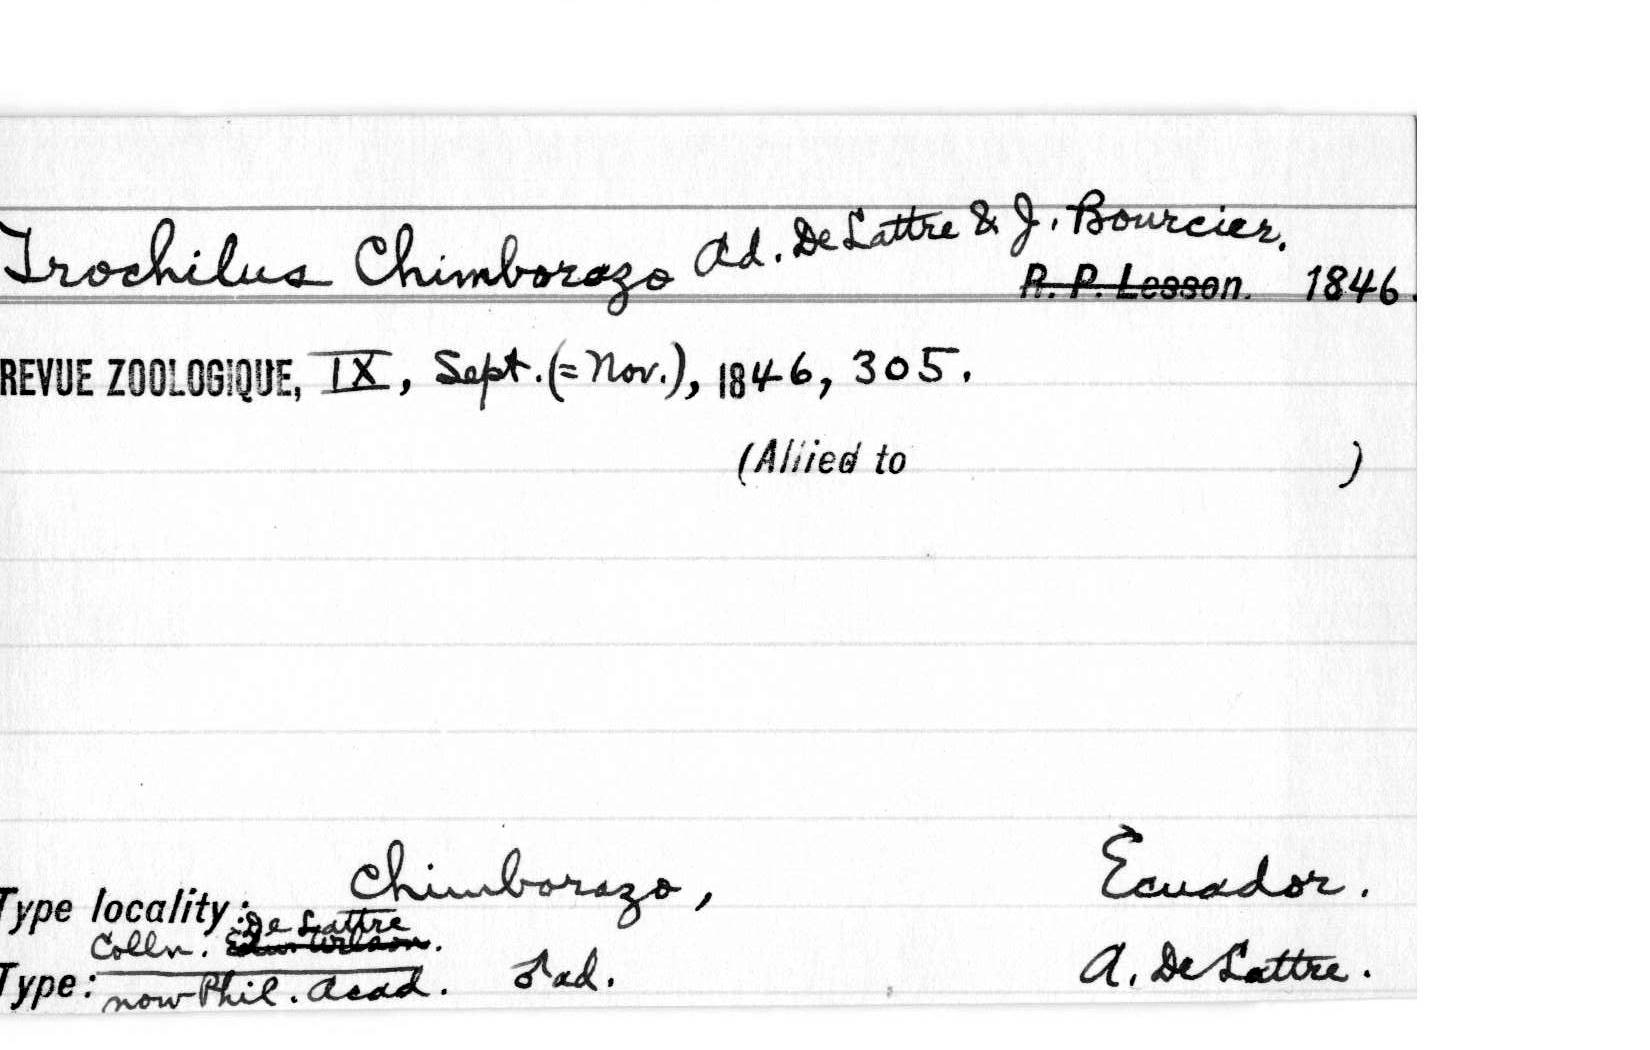 Trochilus Chimborazo Ad. DeLattre & J. Bourcier.
R. P. Lesson. 1846.
REVUE ZOOLOGIQUE, IX, Sept. (= Nov.), 1846, 305.
(Allied to )
Type locality: Chimborazo, Ecuador.
De Lattre
Colln. Edw. Wilson.
Type: now Phil. Acad. ♂ ad. A. DeLattre.